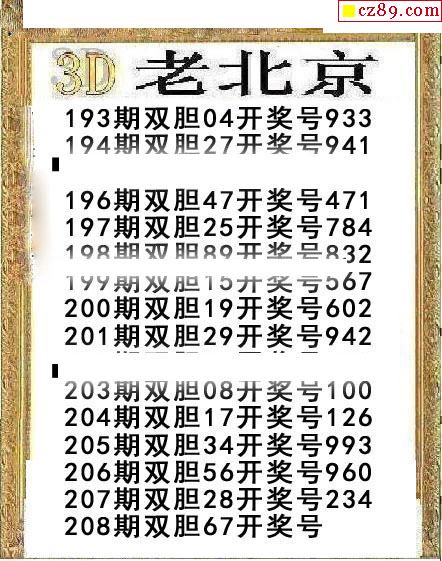 cz89.com
3D 老北京
193期双胆04开奖号933
194期双胆27开奖号941
196期双胆47开奖号471
197期双胆25开奖号784
198期双胆89开奖号832
199期双胆15开奖号567
200期双胆19开奖号602
201期双胆29开奖号942
203期双胆08开奖号100
204期双胆17开奖号126
205期双胆34开奖号993
206期双胆56开奖号960
207期双胆28开奖号234
208期双胆67开奖号